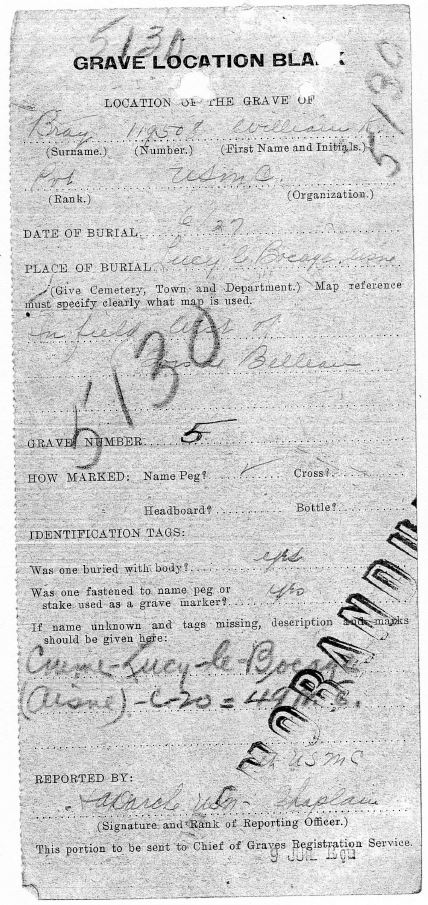 5130
GRAVE LOCATION BLA K
5130
LOCATION OF THE GRAVE OF
Bray William R.
(Surname.) (Number.) (First Name and Initials.)
Pvt USMC.
(Rank.) (Organization.)
DATE OF BURIAL 6/27
PLACE OF BURIAL Lucy le Bocage Aisne
(Give Cemetery, Town and Department.) Map reference
must specify clearly what map is used.
in field West of
Belleau
5130
GRAVE NUMBER 5
HOW MARKED: Name Peg? ✓ Cross?
Headboard? Bottle?
IDENTIFICATION TAGS:
Was one buried with body? yes
Was one fastened to name peg or
stake used as a grave marker? yes
If name unknown and tags missing, description and marks
should be given here:
Lucy-le-Bocage
(Aisne)-C-20=
USMC
REPORTED BY:
Chaplain
(Signature and Rank of Reporting Officer.)
This portion to be sent to Chief of Graves Registration Service.